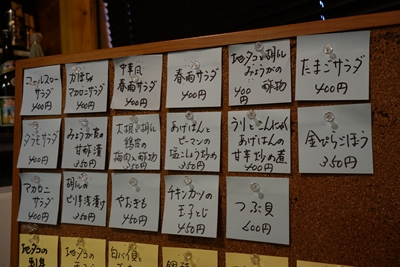 コールスローサラダ
400円
かぼちゃ
マカロニサラダ
400円
中華風
春雨サラダ
400円
春雨サラダ
400円
地タコと胡瓜
みょうがの
酢物
400円
たまごサラダ
400円
タラモサラダ
400円
みょうが
甘酢漬
350円
大根と胡瓜
梅肉入酢物
400円
あげぱんと
ピーマンの
塩こしょう炒め
350円
うりとこんにゃく
あげはんの
甘辛炒め煮
400円
金ぴらごぼう
350円
マカロニ
サラダ
400円
胡瓜の
ピリ辛浅漬け
350円
やおきも
450円
チキンカツの
玉子とじ
450円
つぶ貝
600円
地タコの
地タコの
自パイ貝と